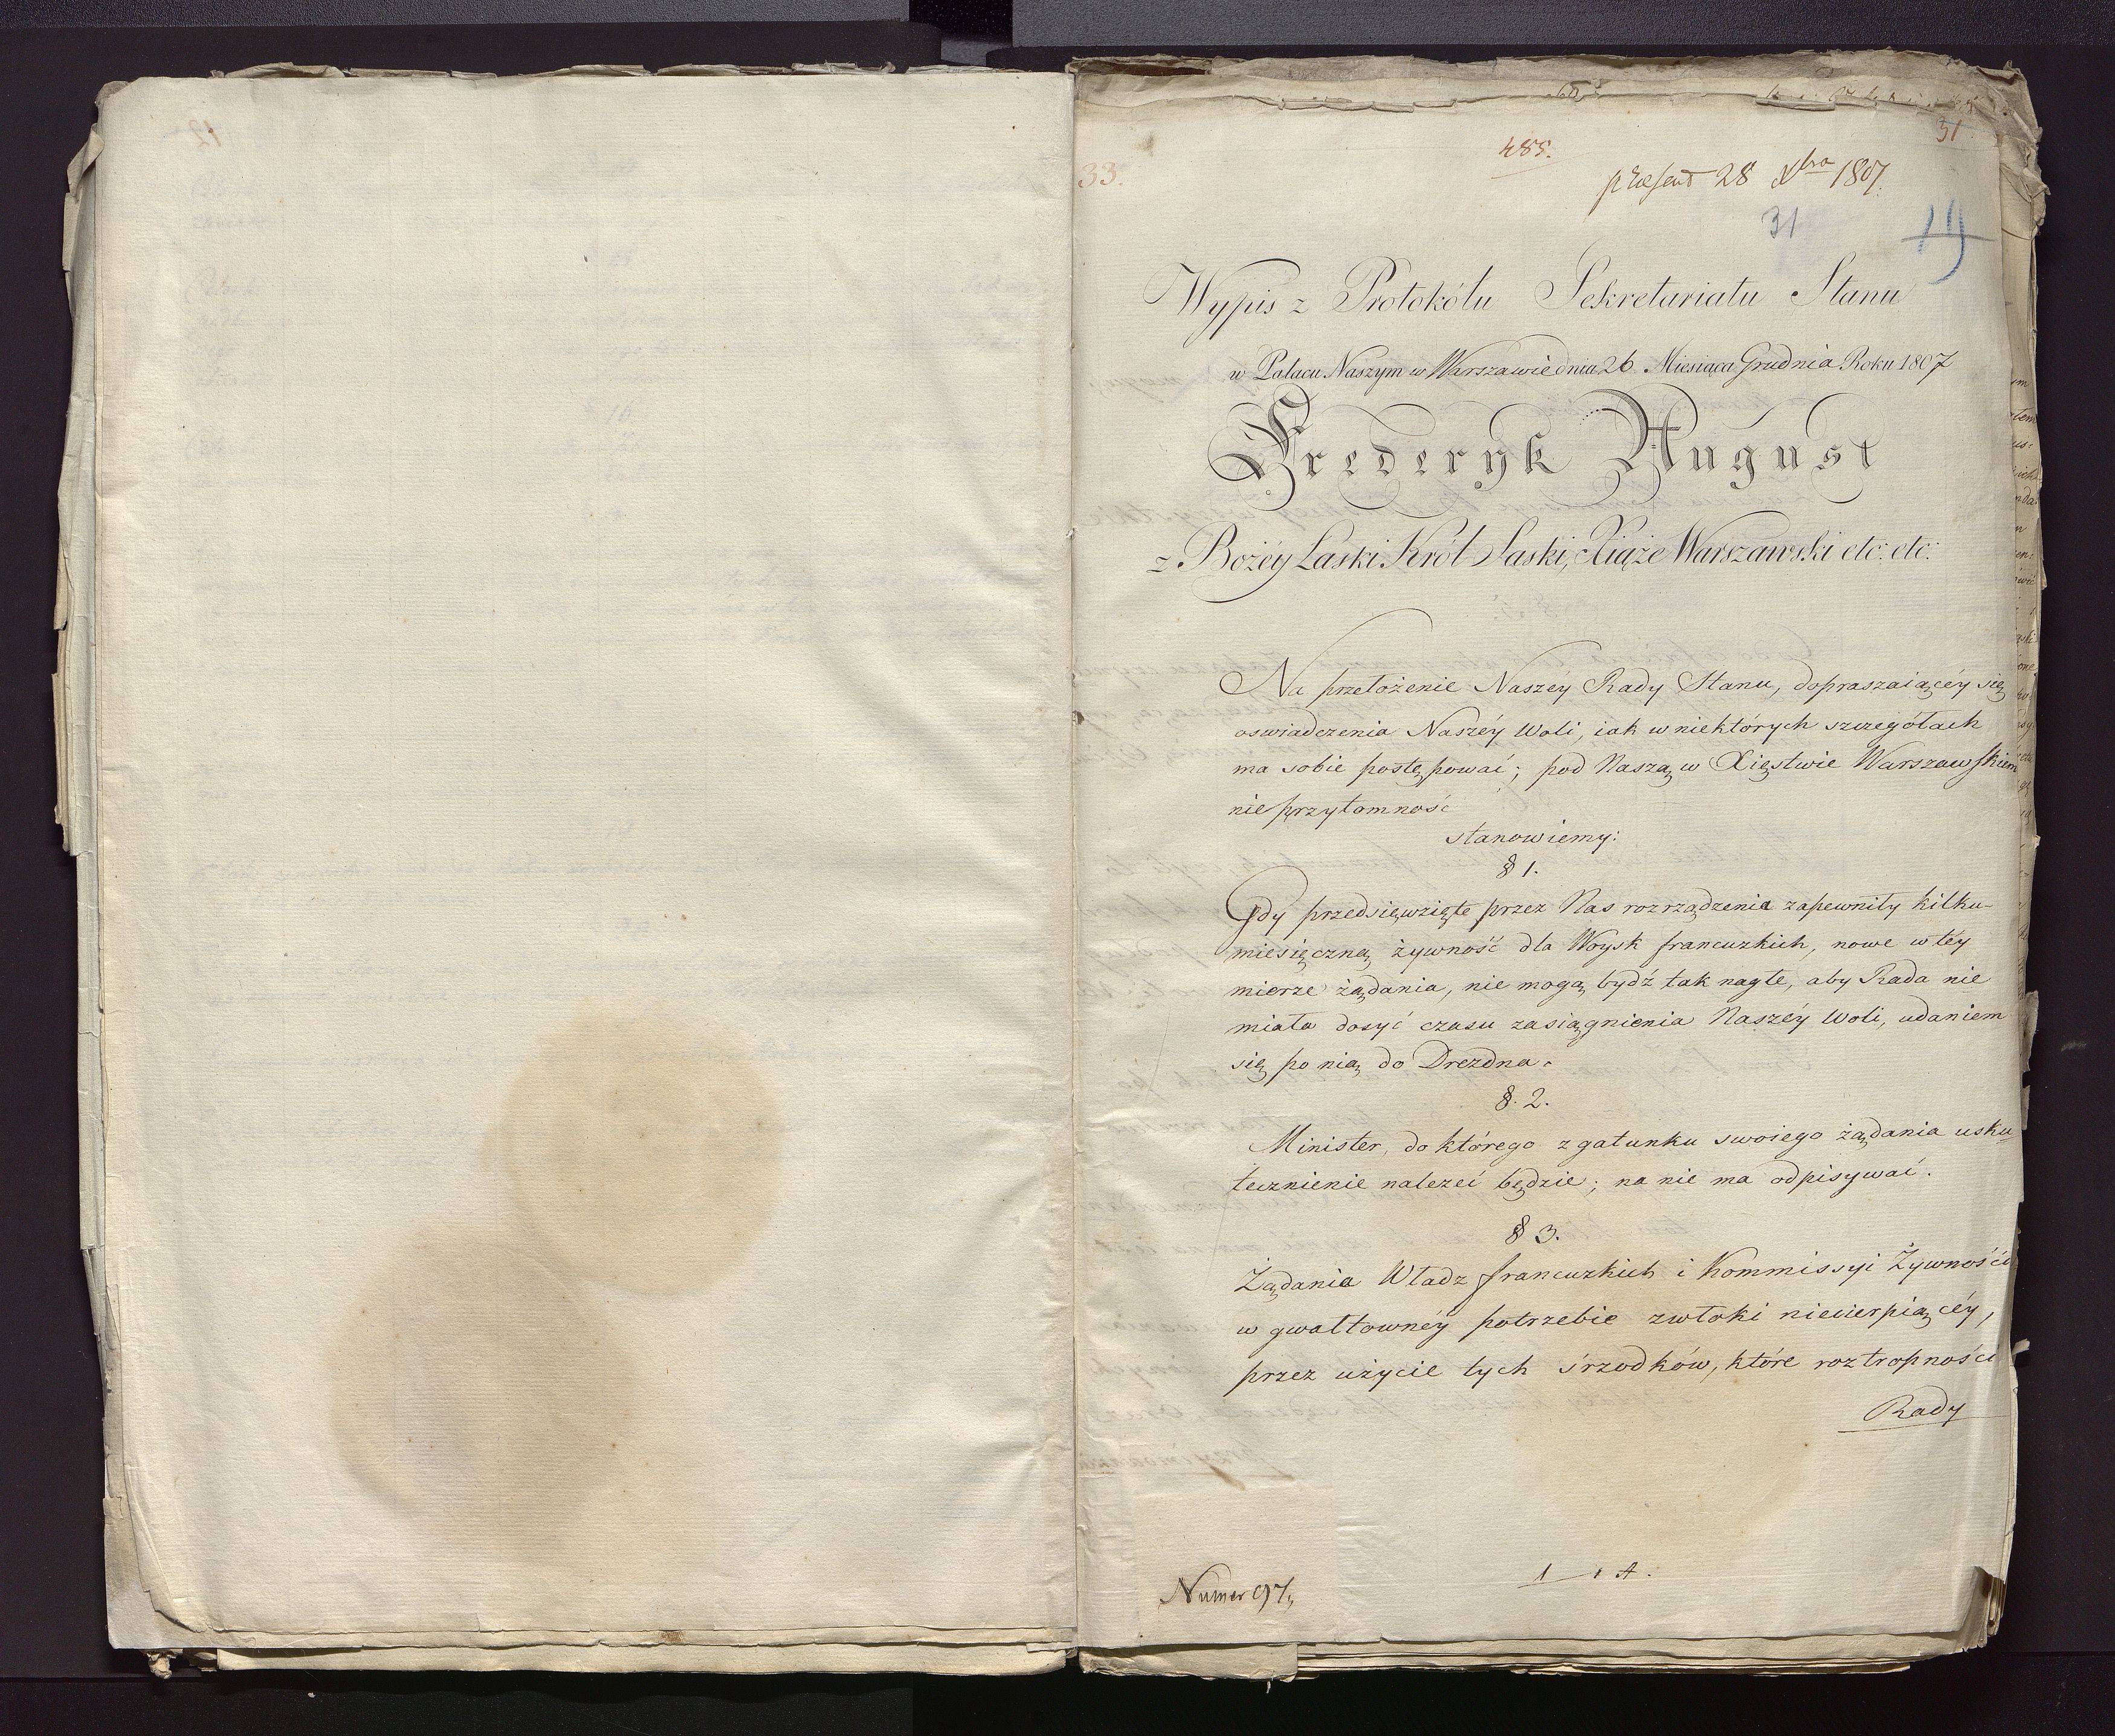 31
485.
33.
præsent 28 Xbra 1807.
31
19
Wypis z Protokółu Sekretariatu Stanu
w Pałacu Naszym w Warszawie dnia 26. Miesiąca Grudnia Roku 1807
Frederyk August
z Bożéy Łaski Król Saski, Xiąże Warszawski etc: etc:
Na przełożenie Naszéy Rady Stanu, dopraszaiącéy się
oswiadczenia Naszéy Woli, iak w niektórych szczegółach
ma sobie postępować; pod Naszą w Xięstwie Warszawskiem
nieprzytomność
stanowiemy:
§ 1.
Gdy przedsięwzięte przez Nas rozrządzenia zapewniły kilku-
miesięczną żywność dla Woysk francuzkich, nowe w téy
mierze żądania, nie mogą bydź tak nagłe, aby Rada nie
miała dosyć czasu zasiągnienia Naszéy Woli, udaniem
się po nią do Drezdna.
§. 2.
Minister, do którego z gatunku swoiego żądania usku-
tecznienie nalezeć będzie; na nie ma odpisywać.
§ 3.
Żądania Władz francuzkich i Kommissyi Żywności
w gwałtownéy potrzebie zwłoki niecierpiącéy,
przez użycie tych śrzodków, które roztropności
Rady
Numer 97,